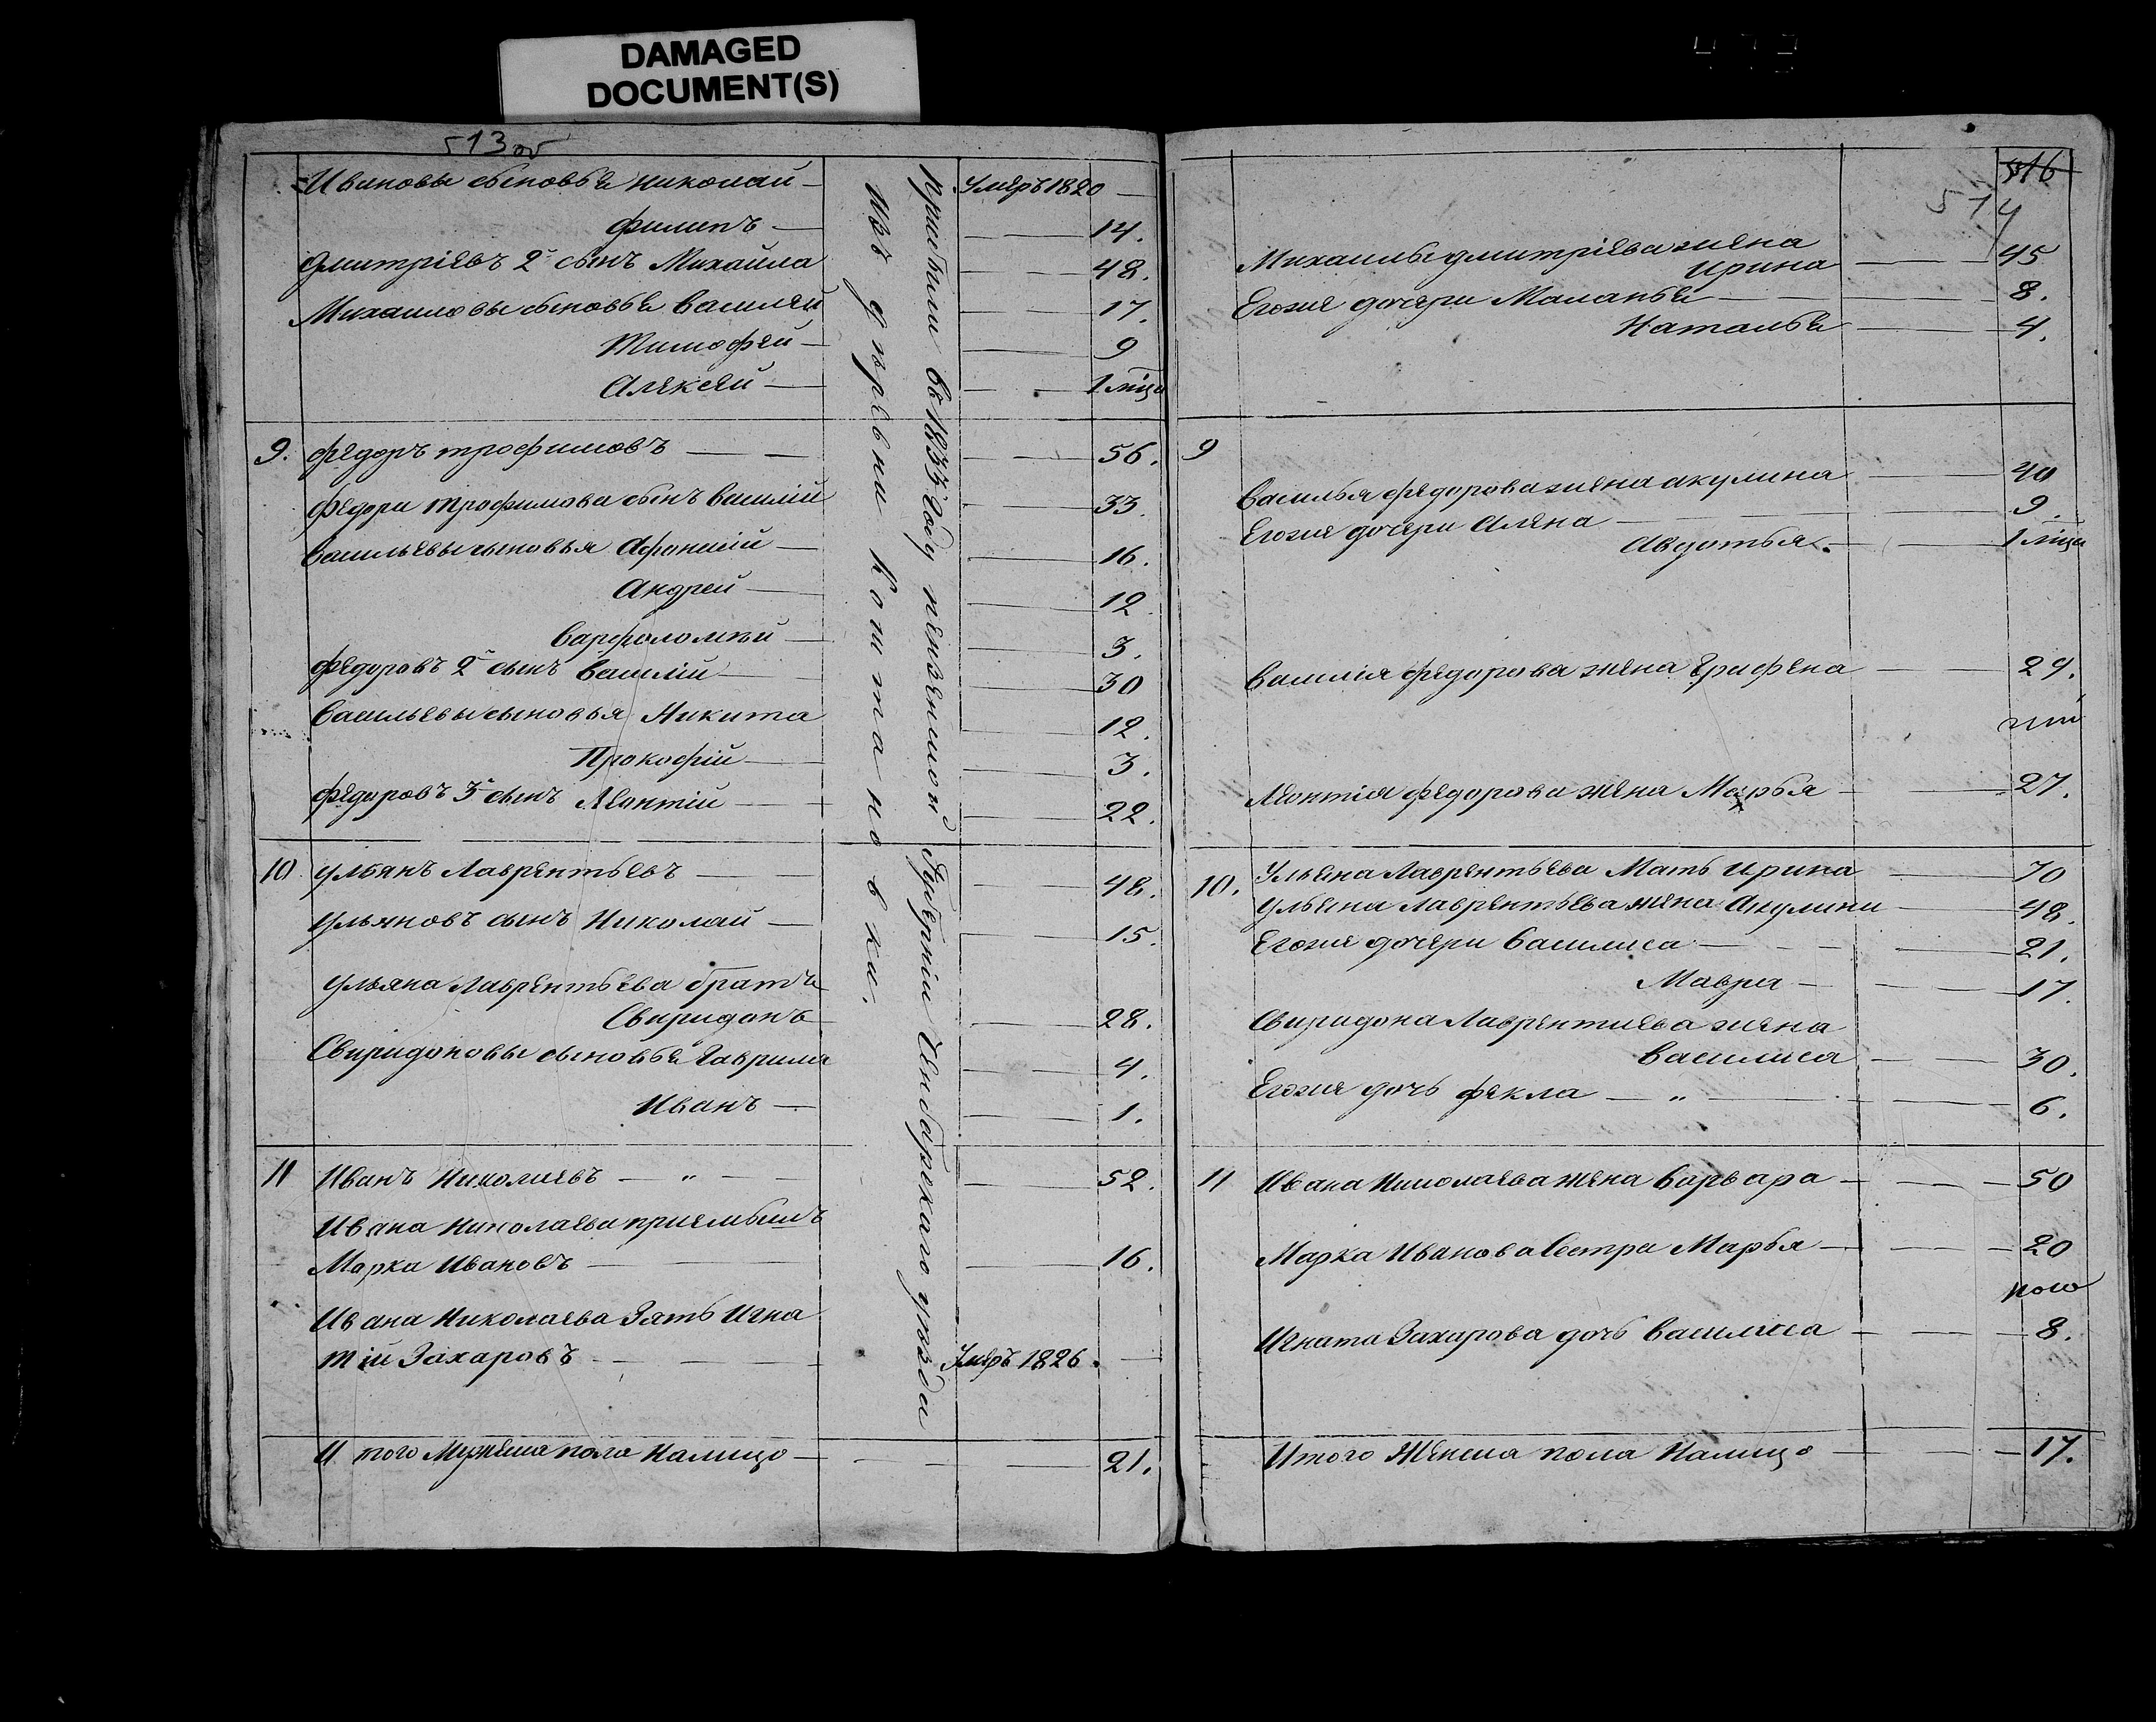 DAMAGED
DOCUMENT(S)
513 об
Ивановы сыновья Николай — умеръ 1820 —
Филипъ — 14.
Дмитріевъ 2й сынъ Михайла — 48.
Михайловы сыновья Василей — 17.
Тимофей — 9
Алексей — 1 м҃ца
9. Федоръ Трофимовъ — 56.
Федора Трофимова сынъ Василій — 33.
Васильевы сыновья Афонасій — 16.
Андрей — 12
Варфоломѣй — 3.
Федоровъ 2й сынъ Василій — 30
Васильевы сыновья Никита — 12.
Прокофій — 3.
Федоровъ 3й сынъ Леонтій — 22.
10 Ульянъ Лаврентьевъ — 48.
Ульяновъ сынъ Николай — 15.
Ульяна Лаврентьева братъ
Свиридонъ — 28.
Свиридоновы сыновья Гаврила — 4.
Иванъ — 1.
11 Иванъ Николаевъ — „ — 52.
Ивана Николаева приемышъ
Марка Ивановъ — 16.
Ивана Николаева Зять Игна
тій Захаровъ — Умеръ 1826. —
Итого Мужеска пола Налицо — 21.
Прибыли въ 1833 году пензенской Губерніи Чембарскаго уѣзда
Изъ деревни Коштановка.
516
514
Михаилы Дмитріева жена
Ирина — 45
Его же дочери Маланья — 8.
Наталья — 4.
9
Василья Федорова жена Акулина — 40
Его же дочери Алена — 9.
Авдотья — 1 м҃ца
Василія Федорова жена Грифена — 29.
Леонтія Федорова жена Марья — 27.
10. Ульяна Лаврентьева Мать Ирина — 70
Ульяна Лаврентьева жена Акулина — 48.
Его же дочери Василиса — 21.
Мавра — 17.
Свиридона Лаврентиева жена
Василиса — 30.
Его же дочь Фекла — „ — 6.
11 Ивана Николаева жена Варвара — 50
Марка Иванова Сестра Марья — 20
Игната Захарова дочь Василиса — 8.
Итого Женска пола Налицо — 17.